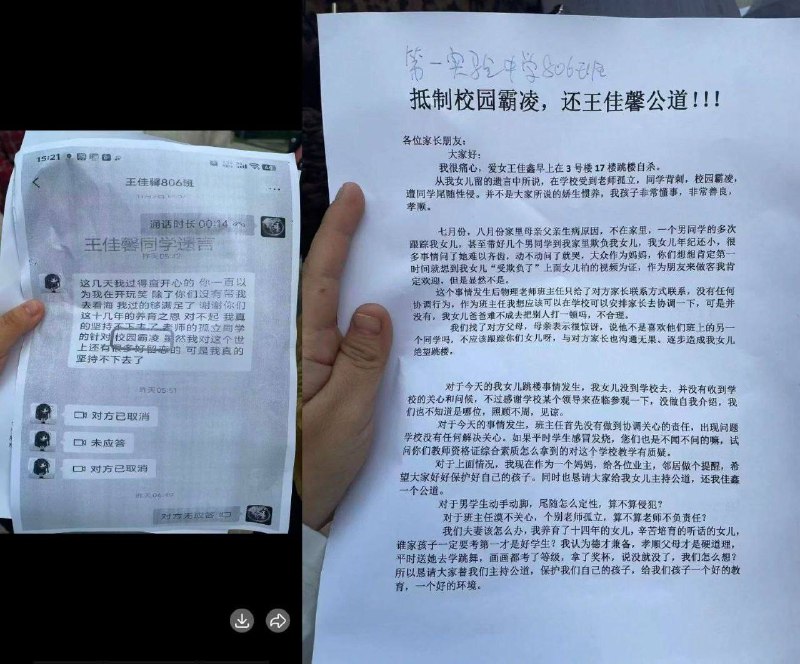 15:21
王佳馨806班
通话时长 00:14
王佳馨同学遗言
昨天05:12
这几天我过得蛮开心的 你一直以
为我在开玩笑 除了你们没有带我
去看海 我过的够满足了 谢谢你们
这十几年的养育之恩 对不起 我真
的坚持不下去了 老师的孤立同学
的针对 校园霸凌 虽然我对这个世
上还有很多好留恋的 可是我真的
坚持不下去了
昨天05:51
对方已取消
未应答
对方已取消
昨天06:49
对方未应答
第一实验中学806班
抵制校园霸凌，还王佳馨公道!!!
各位家长朋友：
大家好：
我很痛心，爱女王佳鑫早上在3号楼17楼跳楼自杀。
从我女儿留的遗言中所说，在学校受到老师孤立，同学背刺，校园霸凌，
遭同学尾随性侵。并不是大家所说的娇生惯养，我孩子非常懂事，非常善良，
孝顺。
七月份，八月份家里母亲父亲生病原因，不在家里，一个男同学的多次
跟踪我女儿，甚至带好几个男同学到我家里欺负我女儿，我女儿年纪还小，很
多事情问了她难以齐齿，动不动问了就哭，大众作为妈妈，你们想想肯定第一
时间就想到我女儿“受欺负了”上面女儿拍的视频为证，作为朋友来做客我肯
定欢迎，但是显然不是。
这个事情发生后物理老师班主任只给了对方家长联系方式联系，没有任何
协调行为，作为班主任我想应该可以在学校可以安排家长去协调一下，可是并
没有，我女儿爸爸难不成去把别人打一顿吗，不合理。
我们找了对方父母，母亲表示很惊讶，说他不是喜欢他们班上的另一
个同学吗，不应该跟踪你们女儿呀，与对方家长也沟通无果、逐步造成我女儿
绝望跳楼。
对于今天的我女儿跳楼事情发生，我女儿没到学校去，并没有收到学
校的关心和问候，不过感谢学校某个领导来莅临参观一下，没做自我介绍，我
们也不知道是哪位，照顾不周，见谅。
对于今天的事情发生，班主任首先没有做到协调关心的责任，出现问题
学校没有任何解决关心，如果平时学生感冒发烧，您们也是不闻不问的嘛，试
问你们教师资格证综合素质怎么拿到的对这个学校教学有质疑。
对于上面情况，我现在作为一个妈妈，给各位业主，邻居做个提醒，希
望大家好好保护好自己的孩子。同时也恳请大家给我女儿主持公道，还我佳鑫
一个公道。
对于男学生动手动脚，尾随怎么定性，算不算侵犯？
对于班主任漠不关心，个别老师孤立，算不算老师不负责任？
我们夫妻该怎么办，我养育了十四年的女儿，辛苦培育的听话的女儿，
谁家孩子一定要考第一才是好学生？我认为德才兼备，孝顺父母才是硬道理，
平时送她去学跳舞，画画都考了等级，拿了奖杯，说没就没了，我们怎么想？
所以恳请大家替我们主持公道，保护我们自己的孩子，给我们孩子一个好的教
育，一个好的环境。